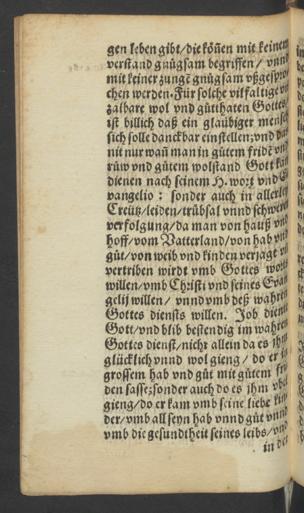 gen leben gibt/die köñen mit keinem
verstand gnůgsam begriffen/ vnnd
mit keiner zungē gnůgsam vßgespro-
chen werden. Für solche vilfaltige vn
zalbare wol vnd gůtthaten Gottes/
ist billich daß ein glaübiger mensch
sich solle danckbar einstellen; vnd das
nit nur wañ man in gůtem fridē vnd
růw vnd gůtem wolstand Gott kan
dienen nach seinem H. wort vnd E-
vangelio: sonder auch in allerley
Creütz/leiden/trůbsal vnnd schweren
verfolgung/da man von hauß vnd
hoff/vom Vatterland/von hab vnd
gůt/von weib vnd kinden verjagt vñ
vertriben wirdt vmb Gottes worts
willen/vmb Christi vnd seines Evan
gelij willen/ vnnd vmb deß wahren
Gottes diensts willen. Job dienet
Gott/vnd blib bestendig im wahren
Gottes dienst/nicht allein da es ihm
glücklich vnnd wol gieng/ do er in
grossem hab vnd gůt mit gůtem fri-
den sasse; sonder auch do es jhm vbel
gieng/do er kam vmb seine liebe kin-
der/vmb all seyn hab vnnd gůt vnnd
vmb die gesundtheit seines leibs/vnd
in der